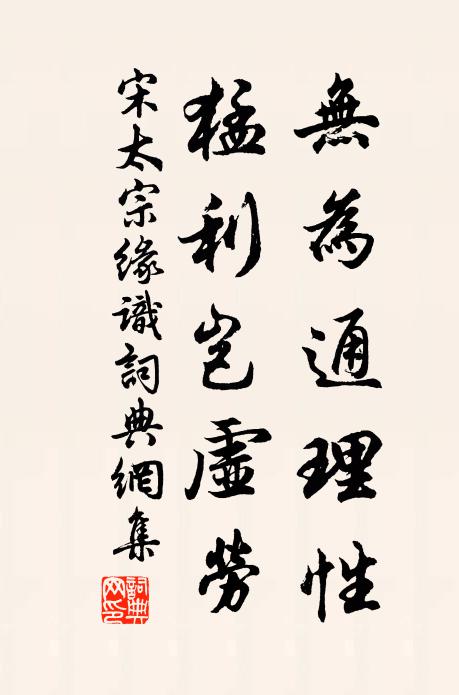 無為通理性
猛利豈虛勞
宋太宗緣識詞典網集
詞典网印